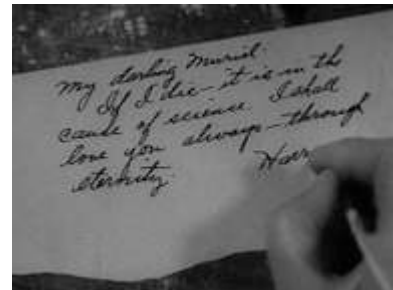 My darling Muriel.
If I die - it is in the
cause of science. I shall
love you always - through
eternity.
Harr